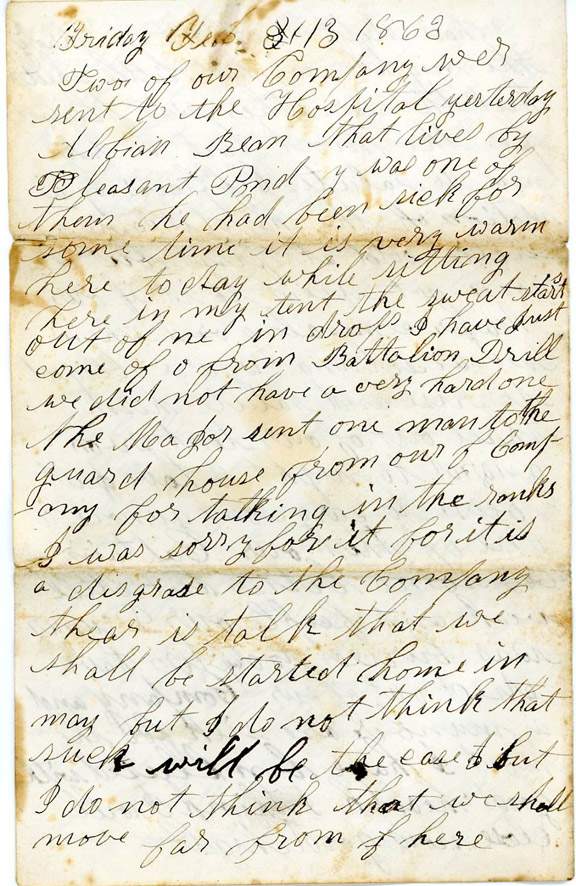 Friday Feb. 13 1863
Two of our Company wer
sent to the Hospital yesterday
Albian Bean that lives by
Pleasant Pond y was one of
them he had been sick for
some time it is very warm
here to day while sitting
here in my tent the sweat starts
out of me in drops I have just
come of o from Battalion Drill
we did not have a very hard one
the Major sent one man to the
guard house from our f Comp
any for talking in the ranks
I was sorry for it for it is
a disgrase to the Company
thear is talk that we
shall be started home in
may but I do not think that
such will be the case but
I do not think that we shall
move far from f here